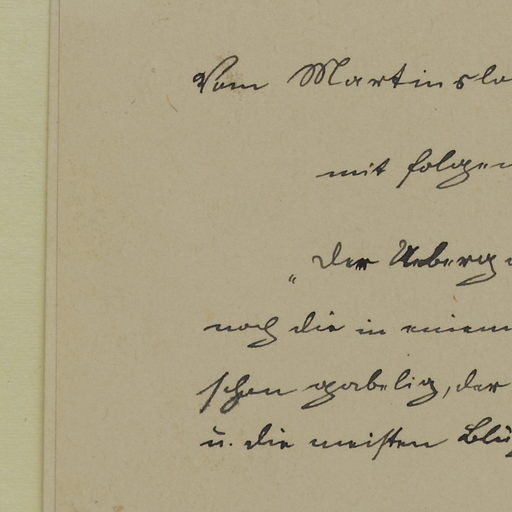 Vom Martinslo
mit folgen
„Der Ueberg
noch die in einem
schon gabelig, der
u. die meisten Blü